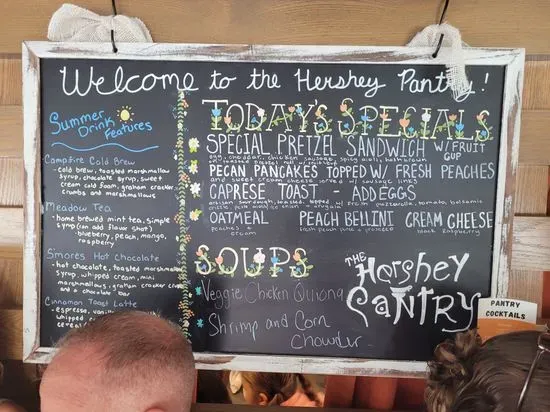 Welcome to the Hershey Pantry!
Summer
Drink
Features
Campfire Cold Brew
- cold brew, toasted marshmallow
syrup, chocolate syrup, sweet
cream cold foam, graham cracker
crumbs and marshmallows
Meadow Tea
- home brewed mint tea, simple
syrup (can add flavor shot)
- blueberry, peach, mango,
raspberry
Smores Hot Chocolate
- hot chocolate, toasted marshmallow
syrup, whipped cream, mini
marshmallows, graham cracker crumbs
and a chocolate bar
Cinnamon Toast Latte
- espresso,
whipped
cereal
TODAY'S SPECIALS
SPECIAL PRETZEL SANDWICH W/ FRUIT
CUP
egg, cheddar, chicken sausage, spicy aioli, hashbrown
PECAN PANCAKES TOPPED W/ FRESH PEACHES
and sweet cream cheese served w/ sausage links
CAPRESE TOAST ADD EGGS
artisan sourdough, toasted, topped w/ fresh mozzarella, tomato, balsamic
OATMEAL PEACH BELLINI CREAM CHEESE
peaches + fresh peach puree + prosecco black raspberry
cream
SOUPS
* Veggie Chicken Quinoa
* Shrimp and Corn
Chowder
THE
Hershey
PANTRY
PANTRY
COCKTAILS